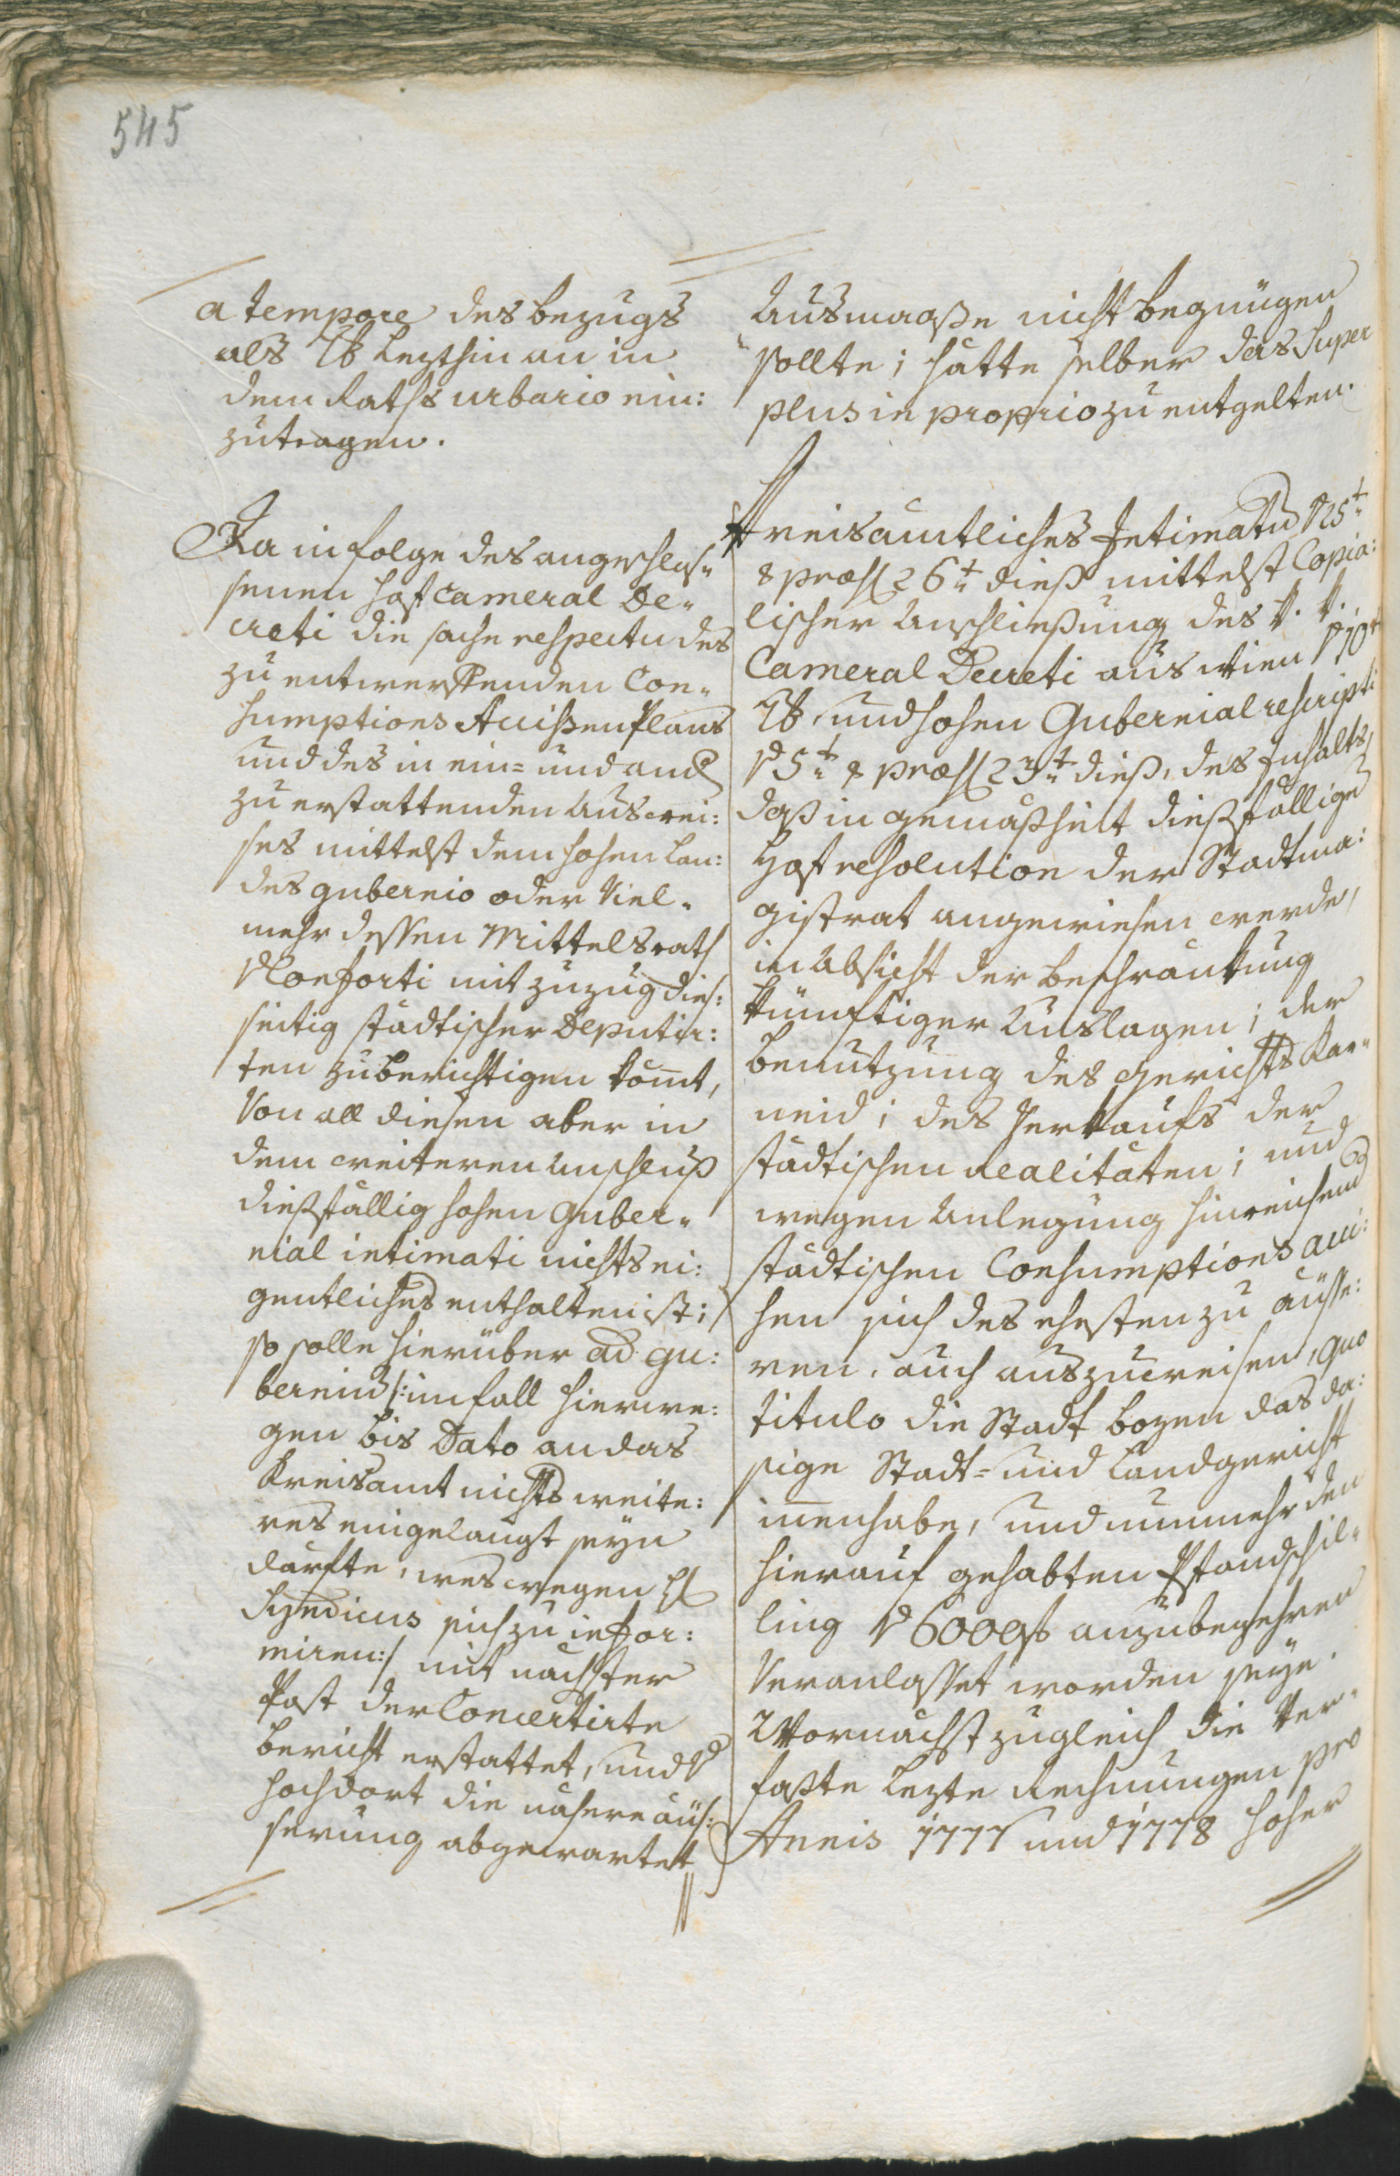 545
a tempore des bezugs
als 7b lezthin an in
dem Raths urbario ein:
zutragen.
Da in folge des angeschlos„
senen hof Cameral De„
creti die sache respectu des
zu entwerffenden Con„
sumptions Accißen Plans
und des in ein= und and
zu erstattenden Auswei:
ses mittelst dem hohen Lan:
des gubernio oder Viel„
mehr dessen Mittelsrath
v Conforti mit zuzug dies:
seitig städtischer Deputir:
ten zu berichtigen kömt,
Von all diesen aber in
dem weiteren Anschluß
dießfällig hohen Guber„
nial intimati nichts ei:
gentliches enthalten ist;
so solle hierüber ad gu:
bernium /: im fall hierwe:
gen bis Dato an das
Kreisamt nichts weite:
res eingelangt seyn
darfte, weswegen H
Syndicus sich zu infor:
miren :/ mit nächster
Post der Concertirte
bericht erstattet, und v
hochdort die nähere äüs:
serung abgewartet
Ausmaaße nicht begnügen
sollte; hätte selber das Super
plus in proprio zu entgelten.
Kreisämtliches Intimatum v 25t
& præs 26t dieß mittelst Copia:
lischer Anschließung des k. k.
Cameral Decreti aus Wien v 10t
7b, und hohen Gubernial rescripti
v 5t & præs 23t dieß, des Inhalts,
daß in gemäßheit dießfälliger
Hofresolution der Stadtma:
gistrat angewiesen werde,
in Absicht der beschränkung
künftiger Auslagen; der
benutzung des Gerichts Kar„
neid; des Verkaufs der
städtischen Realitäten; und
wegen Anlegung hinreichend
städtischen Consumptions acci:
sen sich des ehesten zu äüsse:
ren, auch auszuweisen, quo
titulo die Stadt bozen das da:
sige Stadt= und Landgericht
innenhabe, und nunmehr den
hierauf gehabten Pfandschil„
ling v 6000 f anzubegehren
Veranlasset worden seye.
Wornächst zugleich die Ver„
faßte lezte Rechnungen pro
Annis 1777 und 1778 hoher